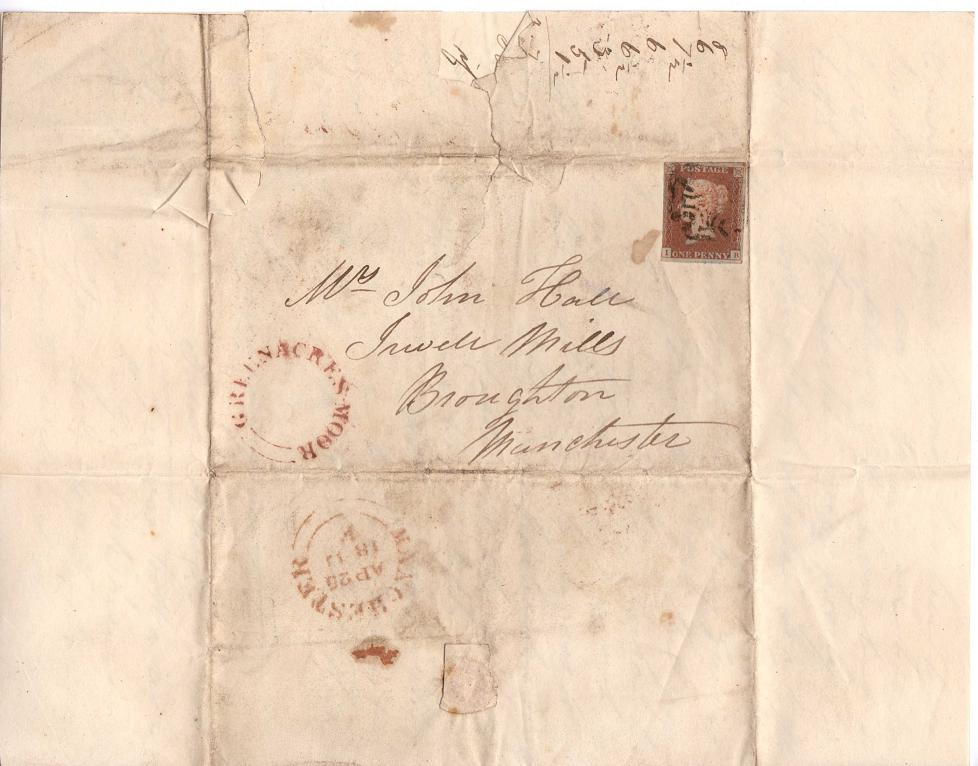 POSTAGE
ONE PENNY
Mr John Hall
Irwell Mills
Broughton
Manchester
GREENACRES-MOOR
MANCHESTER
AP 26